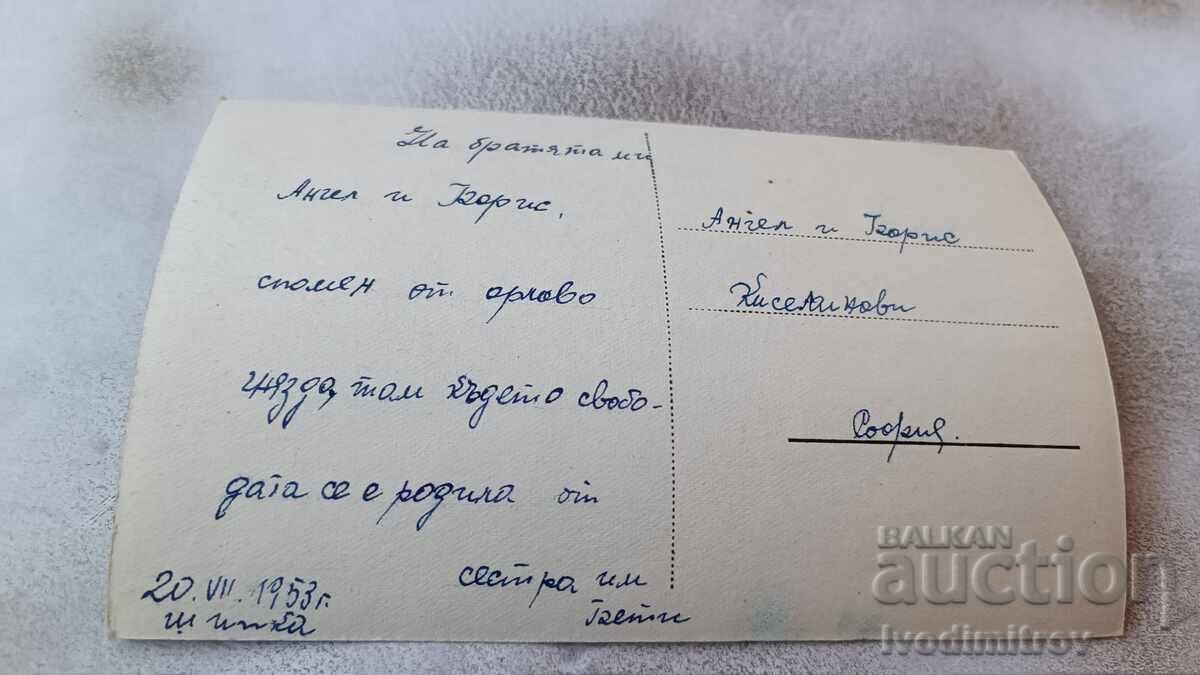 На братята ми
Ангел и Борис,
спомен от орлово
гнездо, там където свобо-
дата се е родила от
сестра им
Бети
20.VII.1953 г.
Шипка
Ангел и Борис
Киселинови
София.
BALKAN
auction
Ivodimitrov